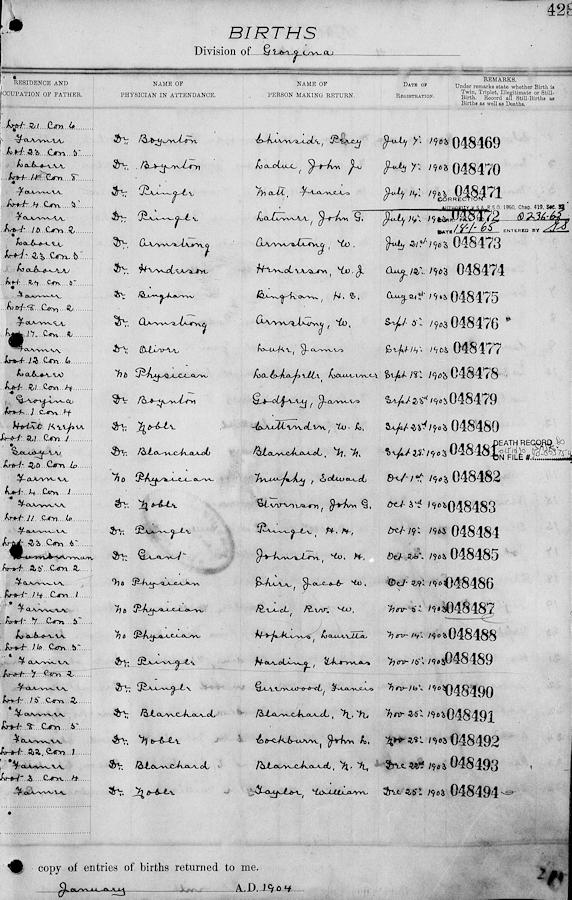 BIRTHS
Division of Georgina
RESIDENCE AND OCCUPATION OF FATHER.
NAME OF PHYSICIAN IN ATTENDANCE.
NAME OF PERSON MAKING RETURN.
DATE OF REGISTRATION.
REMARKS.
Under remarks state whether Birth is Twin, Triplet, Illegitimate or Still-Birth. Record all Still-Births as Births as well as Deaths.
Lot 21 Con 6
Farmer Dr. Boynton Chirnside, Percy July 7. 1903 048469
Lot 23 Con 5
Laborer Dr. Boynton Ladue, John Jr July 7. 1903 048470
Lot 11 Con 8
Farmer Dr. Pringle Matt, Francis July 14. 1903 048471
CORRECTION
Lot 4 Con 3
Farmer Dr. Pringle Latimer, John G. July 14. 1903 048472
DATE 18-1-65 ENTERED BY
Lot 10 Con 2
Laborer Dr. Armstrong Armstrong, W. July 21st 1903 048473
Lot 23 Con 5
Laborer Dr. Henderson Henderson, W. J Aug 12. 1903 048474
Lot 24 Con 5
Farmer Dr. Bingham Bingham, H. E. Aug 21st 1903 048475
Lot 8 Con 2
Farmer Dr. Armstrong Armstrong, W. Sept 5. 1903 048476
Lot 17 Con 2
Farmer Dr. Oliver Luke, James Sept 14. 1903 048477
Lot 12 Con 6
Laborer No Physician Sept 18. 1903 048478
Lot 21 Con 4
Georgina Dr. Boynton Godfrey, James Sept 23d 1903 048479
Lot 1 Con 4
Hotel Keeper Dr. Noble Crittenden, W. L. Sept 23d 1903 048480
Lot 21 Con 1
Sawyer Dr. Blanchard Blanchard, N. N. Sept 25. 1903 048481
DEATH RECORD
ON FILE #
Lot 20 Con 6
Farmer No Physician Murphy, Edward Oct 1st 1903 048482
Lot 4 Con 1
Farmer Dr. Noble Stevenson, John G. Oct 3rd 1903 048483
Lot 11 Con 6
Farmer Dr. Pringle Pringle, H. H. Oct 19. 1903 048484
Lot 23 Con 5
Lumberman Dr. Grant Johnston, W. H. Oct 26. 1903 048485
Lot 25 Con 2
Farmer No Physician Shier, Jacob W. Oct 29. 1903 048486
Lot 14 Con 1
Farmer No Physician Reid, Rev. W. Nov 5. 1903 048487
Lot 7 Con 5
Laborer No Physician Hopkins, Lauretta Nov 14. 1903 048488
Lot 16 Con 5
Farmer Dr. Pringle Harding, Thomas Nov 15. 1903 048489
Lot 7 Con 2
Farmer Dr. Pringle Greenwood, Francis Nov 16. 1903 048490
Lot 15 Con 2
Farmer Dr. Blanchard Blanchard, N. N. Nov 25. 1903 048491
Lot 8 Con 5
Farmer Dr. Noble Cockburn, John L. Nov 28. 1903 048492
Lot 22 Con 1
Farmer Dr. Blanchard Blanchard, N. N. Dec 22nd 1903 048493
Lot 3 Con 4
Farmer Dr. Noble Taylor, William Dec 25. 1903 048494
copy of entries of births returned to me.
January A.D. 1904